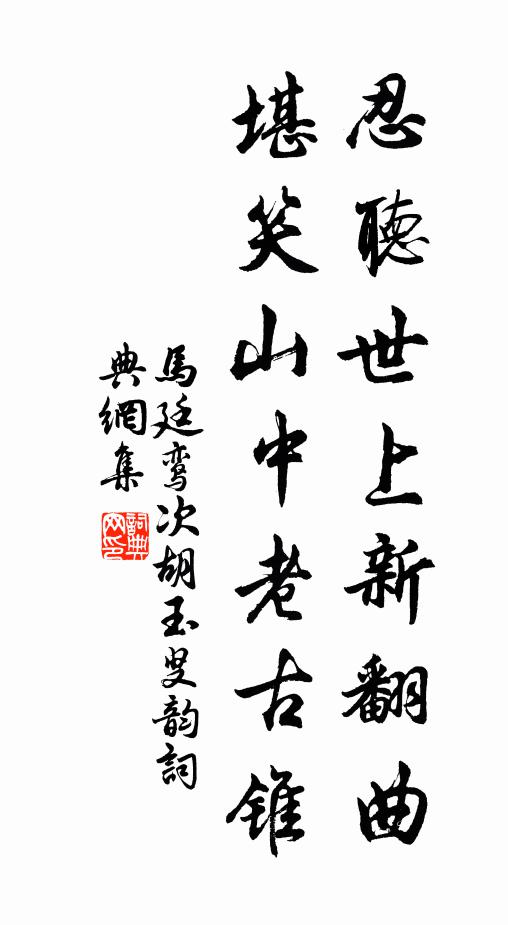 忍聽世上新翻曲
堪笑山中老古錐
馬廷鸾次胡玉叟韵詞
典網集
詞典網印